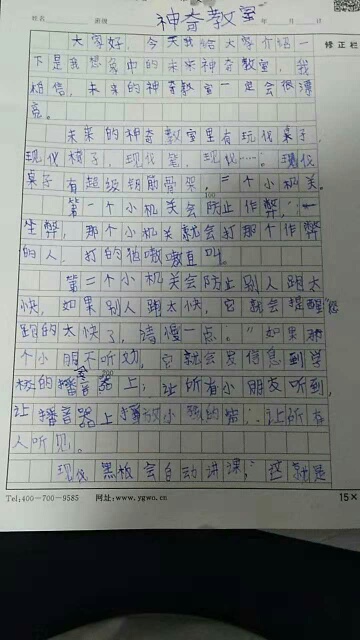 神奇教室
姓名 班级 年 月 日
修正栏
大家好，今天我给大家介绍一
下是我想象中的未来神奇教室，我
相信，未来的神奇教室一定会很漂
亮。
未来的神奇教室里有现代桌子，
现代椅子，现代笔，现代……。现代
桌子有超级钢筋骨架，二个小机关。
100
第一个小机关会防止作弊，
坐弊，那个小机关就会打那个作弊
的人，打的他嗷嗷直叫。
第二个小机关会防止别人跑太
快，如果别人跑太快，它就会提醒您
跑的太快了，请慢一点。”如果那
个小朋不听劝，它就会发信息到学
校的播音器上，让所有小朋友听到，
200
让播音器上播放小 的 ，让所有
人听见。
现代黑板会自动讲课，这就是
Tel:400-700-9585 网址:www.ygwo.cn 15×